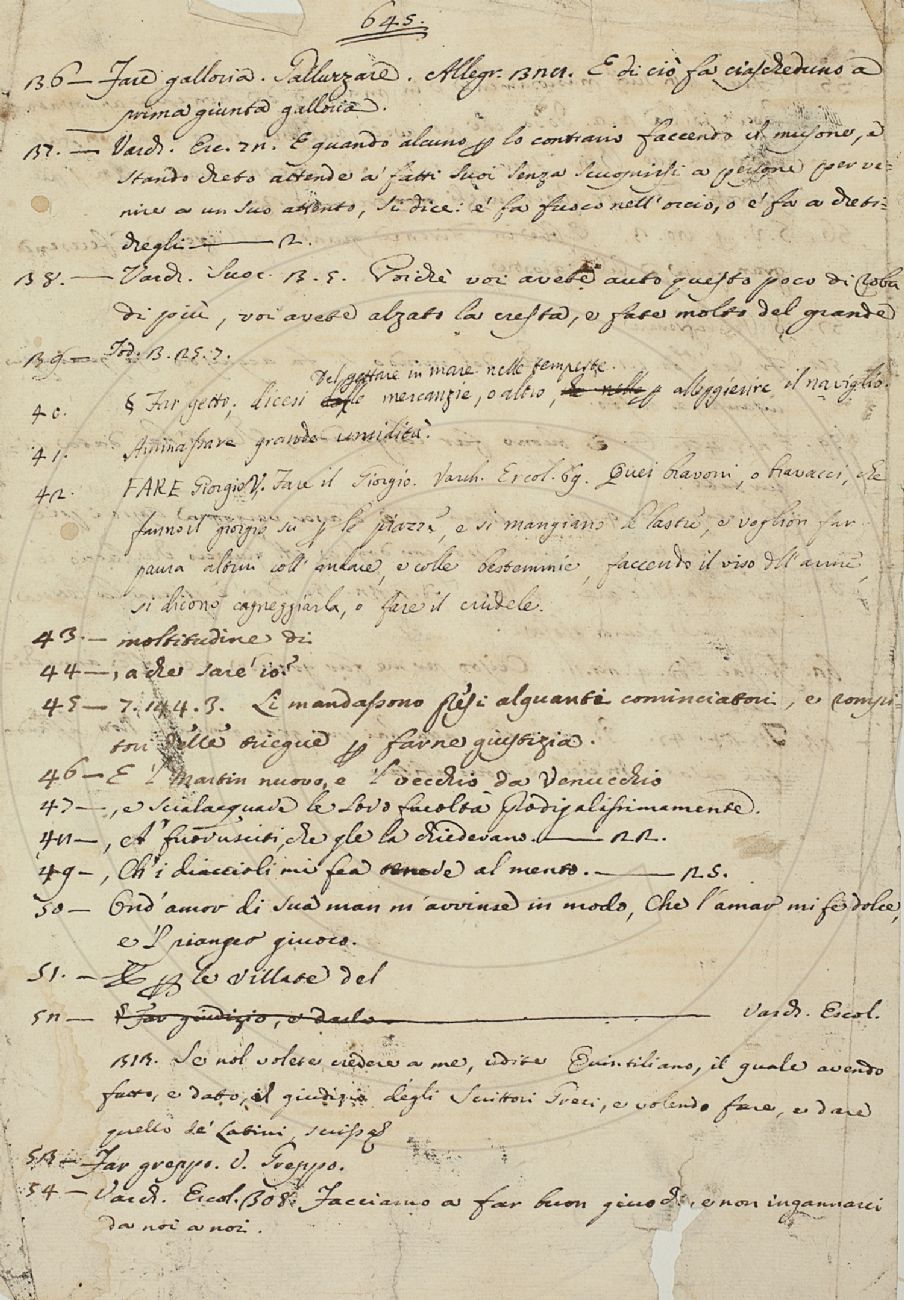 645.
136 — Fare galloria. Galluzzare. Allegr. 132. E di ciò fa ciascheduno a
prima giunta galloria.
137. — Varch. Erc. 72. E quando alcuno p lo contrario faccendo il musone, e
stando cheto attende a' fatti suoi senza scuoprirsi a persone per ve=
nire a un suo attento, si dice: e' fa fuoco nell'orcio, o e' fa a cheti=
chegli — 2.
138. — Varch. Suoc. 3. 5. Poichè voi avete auto questo poco di roba
di più, voi avete alzato la cresta, e fate molto del grande
139 — Tod. 3. 25. 7.
Del gettare in mare nelle tempeste
40. § Far getto; dicesi le mercanzie, o altro, p alleggierire il naviglio.
41. Ammassare grande umiltà.
42. FARE Giorgio V. Fare il Giorgio. Varch. Ercol. 69. Quei bravoni, o bravacci, che
fanno il giorgio su p le piazze, e si mangiano le lastre, e voglion far
paura altrui coll'andare, e colle bestemmie, faccendo il viso dell'arme,
si dicono cagneggiarla, o fare il crudele.
43 — moltitudine di
44 —, a che sare' io?
45 — 7. 144. 3. Li mandassono presi alquanti cominciatori, e rompi=
tori delle triegue p farne giustizia.
46 — E 'l Mastin nuovo, e 'l vecchio da Verrucchio
47 —, e scialacquare le loro facoltà prodigalissimamente.
48 —, A' fuorusciti, che gle la chiedevano. — 22.
49 —, Ch'i diaccioli mi fea al mento. — 25.
50 — Ond'amor di sua man m'avvinse in modo, Che l'amar mi fè dolce,
e 'l pianger giuoco.
51. — p le villate del
52 — § Far giudizio, e darlo. — Varch. Ercol.
313. Se nol volete credere a me, udite Quintiliano, il quale avendo
fatto, e dato, il giudizio degli Scrittori Greci, e volendo fare, e dare
quello de' Latini, scrisse
53 — Far greppo. V. Greppo.
54 — Varch. Ercol. 308. Facciamo a far buon giuochi, e non ingannarci
da noi a noi.